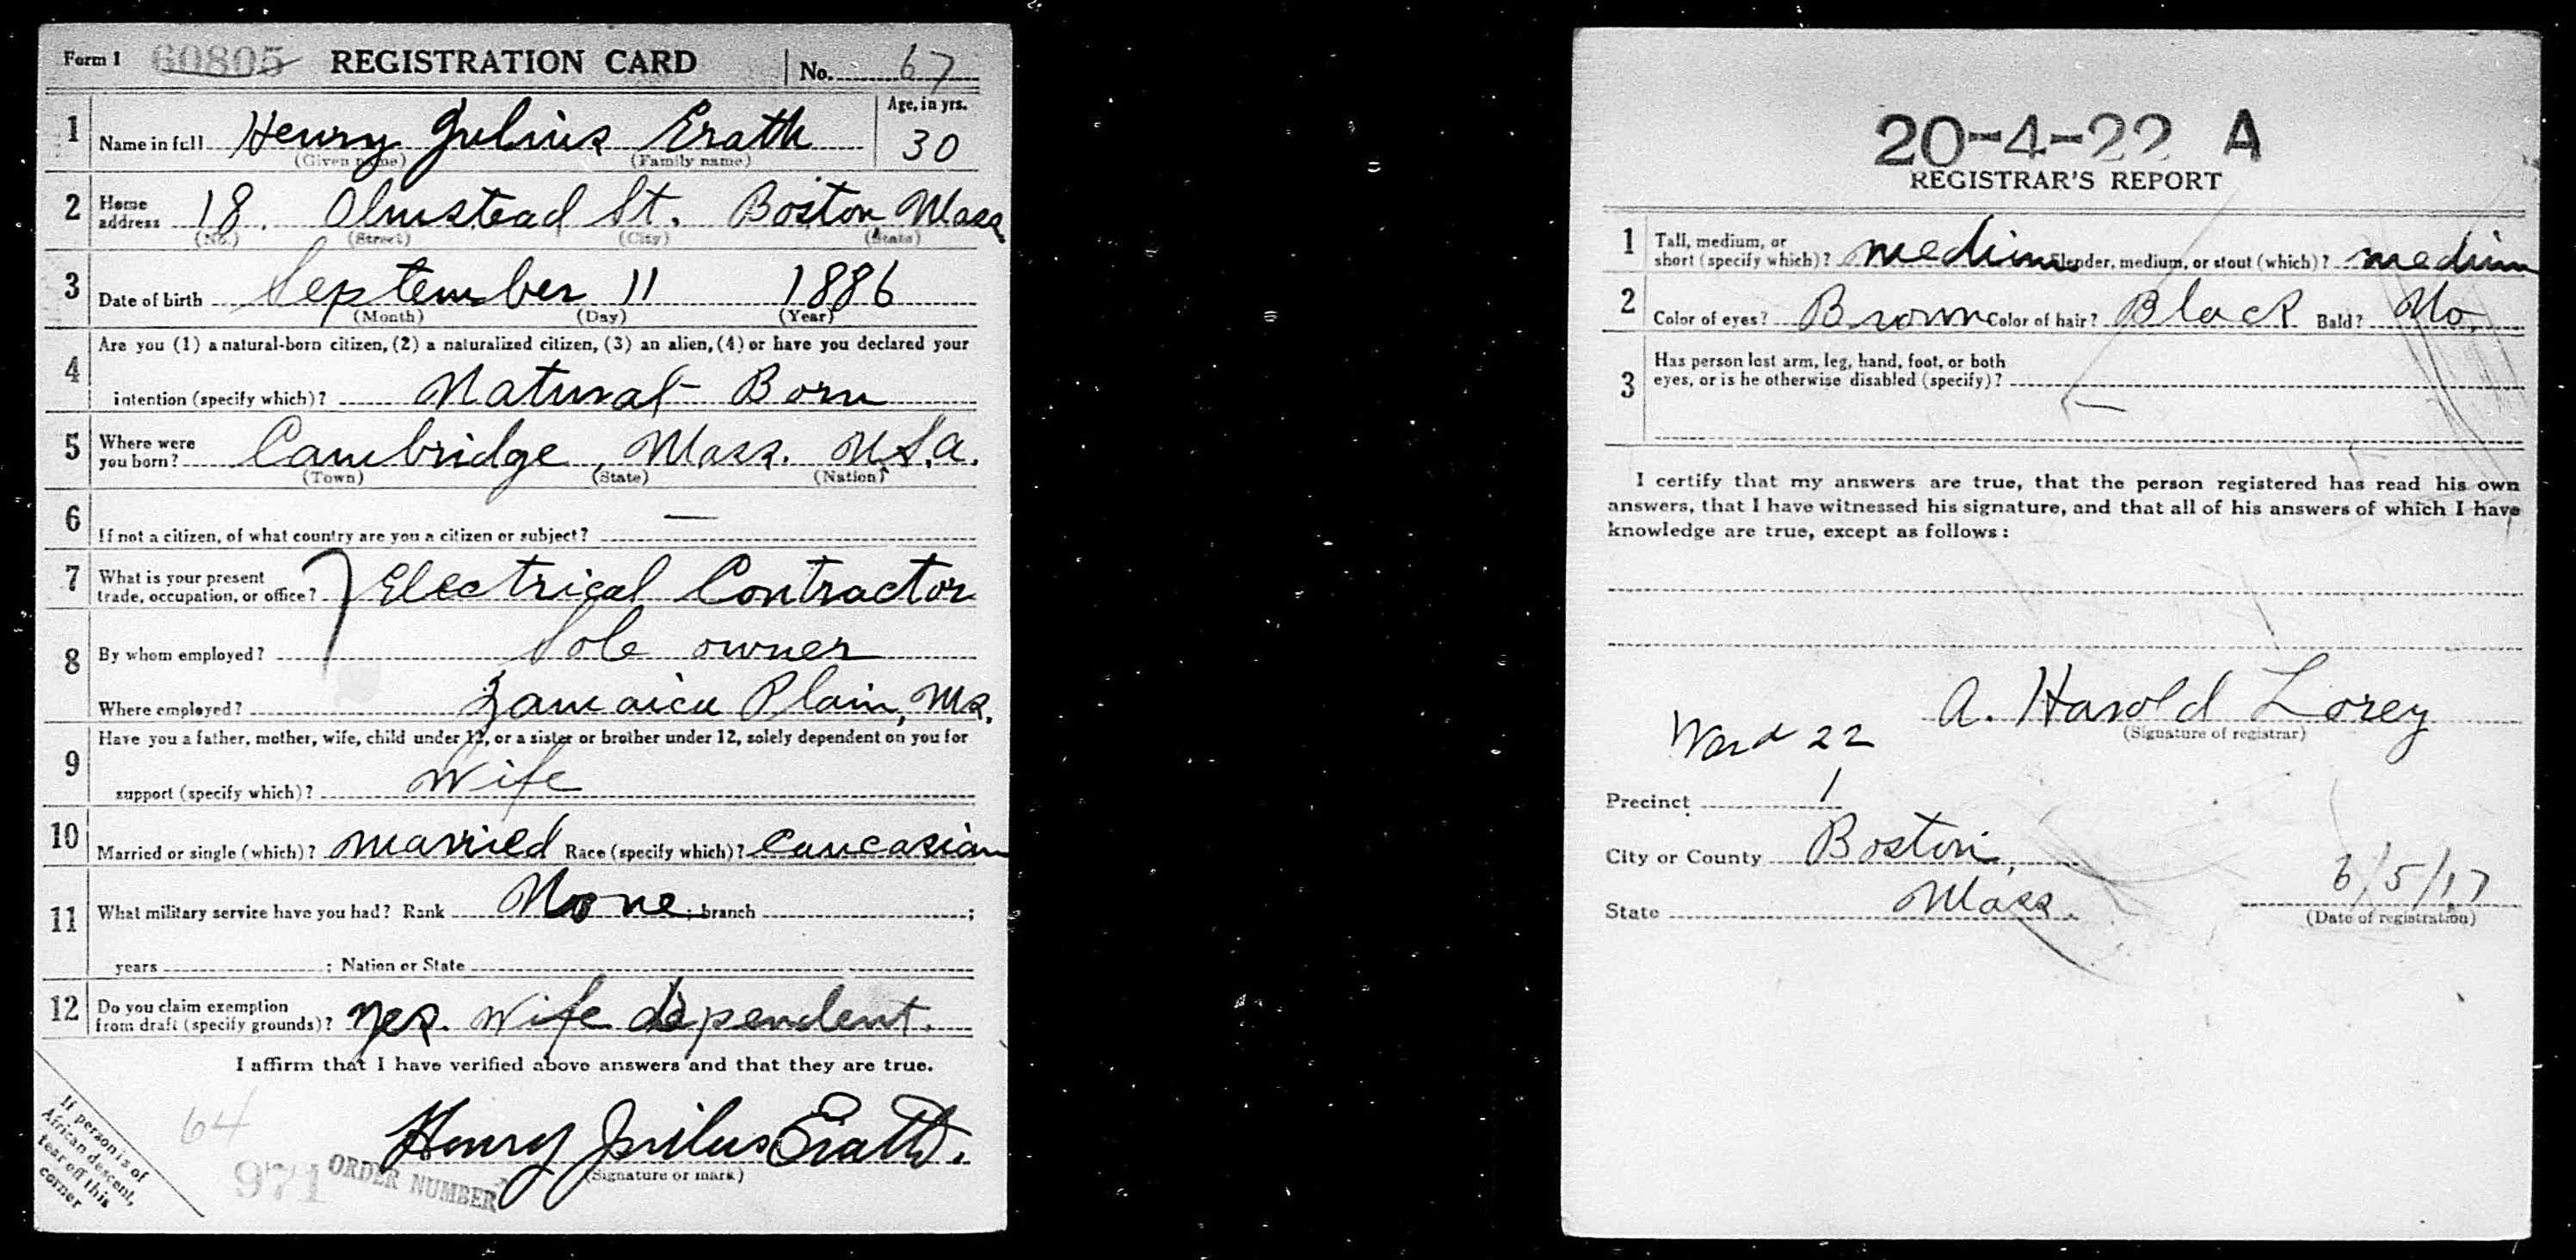 Form 1 60805 REGISTRATION CARD No. 67
1 Name in full Henry Julius Erath Age, in yrs.
(Given name) (Family name) 30
2 Home address 18. Olmstead St. Boston Mass
(No.) (Street) (City) (State)
3 Date of birth September 11 1886
(Month) (Day) (Year)
4 Are you (1) a natural-born citizen, (2) a naturalized citizen, (3) an alien, (4) or have you declared your
intention (specify which)? Natural Born
5 Where were you born? Cambridge, Mass. U.S.A.
(Town) (State) (Nation)
6 If not a citizen, of what country are you a citizen or subject? —
7 What is your present
trade, occupation, or office? Electrical Contractor
8 By whom employed? Sole owner
Where employed? Jamaica Plain, Ms.
9 Have you a father, mother, wife, child under 12, or a sister or brother under 12, solely dependent on you for
support (specify which)? Wife
10 Married or single (which)? married Race (specify which)? Caucasian
11 What military service have you had? Rank None; branch ;
years ; Nation or State
12 Do you claim exemption
from draft (specify grounds)? Yes. Wife dependent.
I affirm that I have verified above answers and that they are true.
64
Henry Julius Erath.
(Signature or mark)
971 ORDER NUMBER
If person is of
African descent,
tear off this
corner
20-4-22 A
REGISTRAR'S REPORT
1 Tall, medium, or
short (specify which)? medium Slender, medium, or stout (which)? medium
2 Color of eyes? Brown Color of hair? Black Bald? No.
3 Has person lost arm, leg, hand, foot, or both
eyes, or is he otherwise disabled (specify)?
—
I certify that my answers are true, that the person registered has read his own
answers, that I have witnessed his signature, and that all of his answers of which I have
knowledge are true, except as follows:
A. Harold Lorey
(Signature of registrar)
Ward 22
Precinct 1
City or County Boston,
State Mass. 6/5/17
(Date of registration)